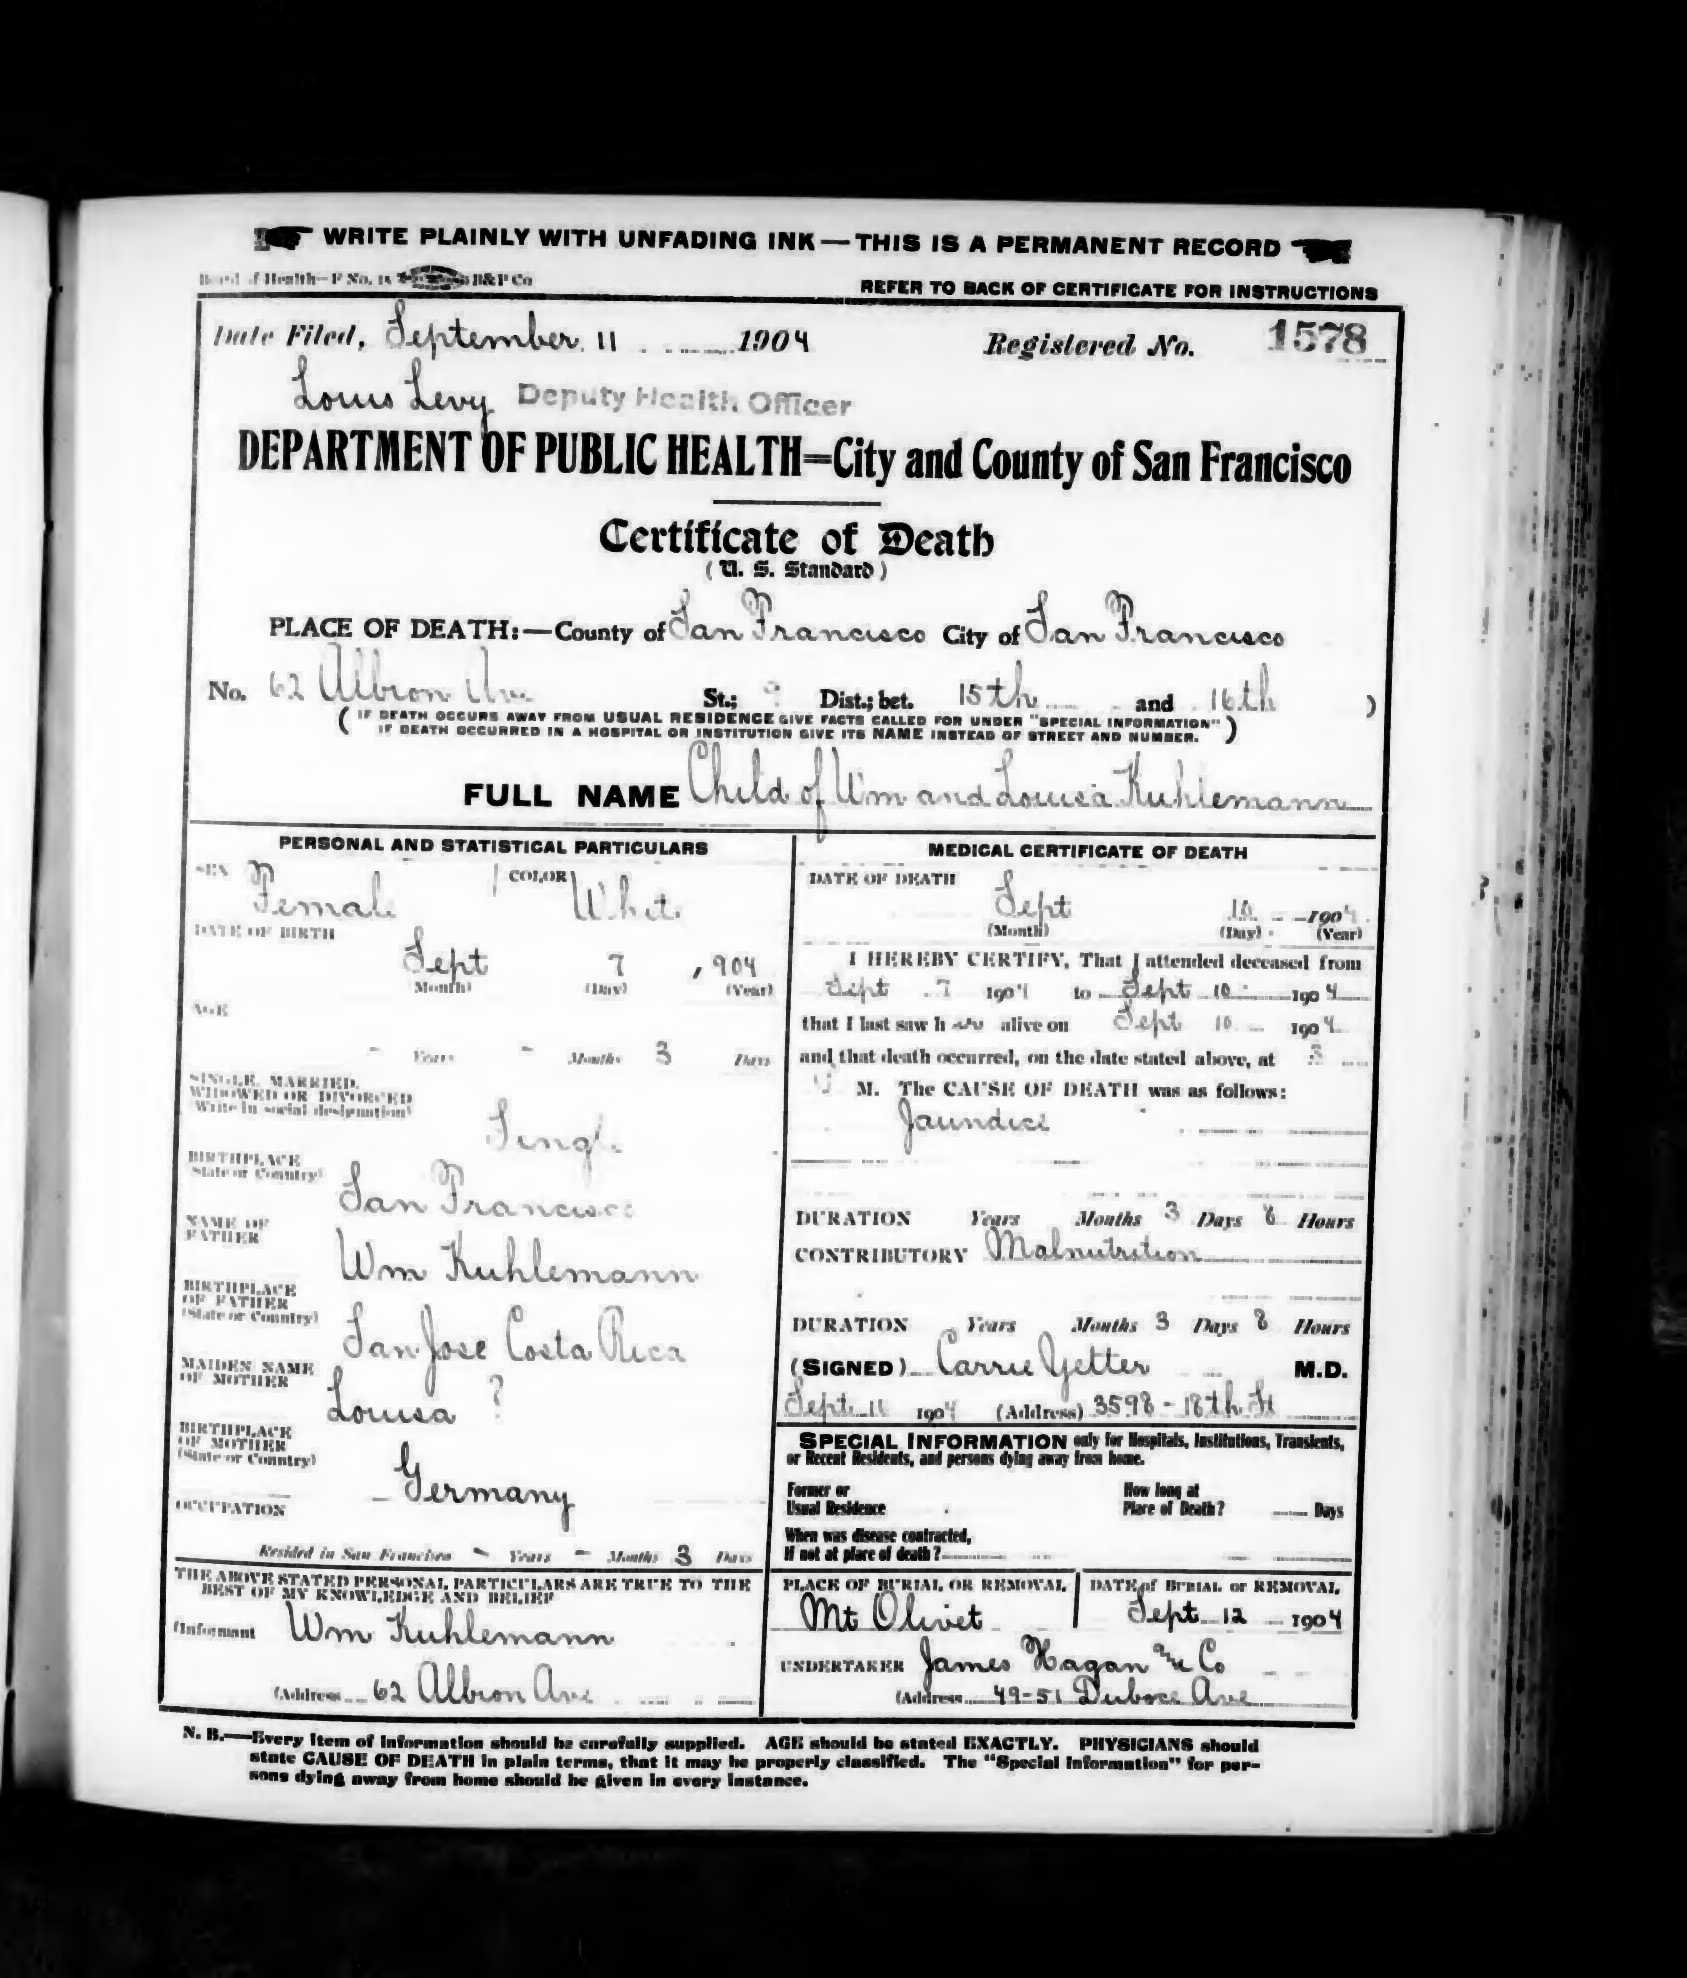 WRITE PLAINLY WITH UNFADING INK—THIS IS A PERMANENT RECORD
Board of Health—F No. B&P Co
REFER TO BACK OF CERTIFICATE FOR INSTRUCTIONS
Date Filed, September 11 1904 Registered No. 1578
Louis Levy Deputy Health Officer
DEPARTMENT OF PUBLIC HEALTH=City and County of San Francisco
Certificate of Death
(U. S. Standard)
PLACE OF DEATH:—County of San Francisco City of San Francisco
No. 62 Albion Ave St.; Dist.; bet. 15th and 16th )
( IF DEATH OCCURS AWAY FROM USUAL RESIDENCE GIVE FACTS CALLED FOR UNDER "SPECIAL INFORMATION" )
IF DEATH OCCURRED IN A HOSPITAL OR INSTITUTION GIVE ITS NAME INSTEAD OF STREET AND NUMBER.
FULL NAME Child of Wm and Louisa Kuhlemann
PERSONAL AND STATISTICAL PARTICULARS
SEX Female COLOR White
DATE OF BIRTH
Sept 7, 904
(Month) (Day) (Year)
AGE
- Years - Months 3 Days
SINGLE, MARRIED,
WIDOWED OR DIVORCED
(Write in social designation)
Single
BIRTHPLACE
(State or Country)
San Francisco
NAME OF
FATHER
Wm Kuhlemann
BIRTHPLACE
OF FATHER
(State or Country)
San Jose Costa Rica
MAIDEN NAME
OF MOTHER
Louisa ?
BIRTHPLACE
OF MOTHER
(State or Country)
Germany
OCCUPATION
Resided in San Francisco - Years - Months 3 Days
THE ABOVE STATED PERSONAL PARTICULARS ARE TRUE TO THE
BEST OF MY KNOWLEDGE AND BELIEF
(Informant Wm Kuhlemann
(Address 62 Albion Ave
MEDICAL CERTIFICATE OF DEATH
DATE OF DEATH
Sept 10 1904
(Month) (Day) (Year)
I HEREBY CERTIFY, That I attended deceased from
Sept 7 1904 to Sept 10 1904
that I last saw h er alive on Sept 10 1904
and that death occurred, on the date stated above, at 3
M. The CAUSE OF DEATH was as follows:
Jaundice
DURATION Years Months 3 Days 8 Hours
CONTRIBUTORY Malnutrition
DURATION Years Months 3 Days 8 Hours
(SIGNED) Carrie Yetter M.D.
Sept 11 1904 (Address) 3598-18th St
SPECIAL INFORMATION only for Hospitals, Institutions, Transients,
or Recent Residents, and persons dying away from home.
Former or
Usual Residence
How long at
Place of Death? Days
When was disease contracted,
If not at place of death?
PLACE OF BURIAL OR REMOVAL DATE of BURIAL or REMOVAL
Mt Olivet Sept 12 1904
UNDERTAKER James Hagan & Co
(Address 49-51 Duboce Ave
N. B.—Every item of information should be carefully supplied. AGE should be stated EXACTLY. PHYSICIANS should
state CAUSE OF DEATH in plain terms, that it may be properly classified. The "Special Information" for per-
sons dying away from home should be given in every instance.